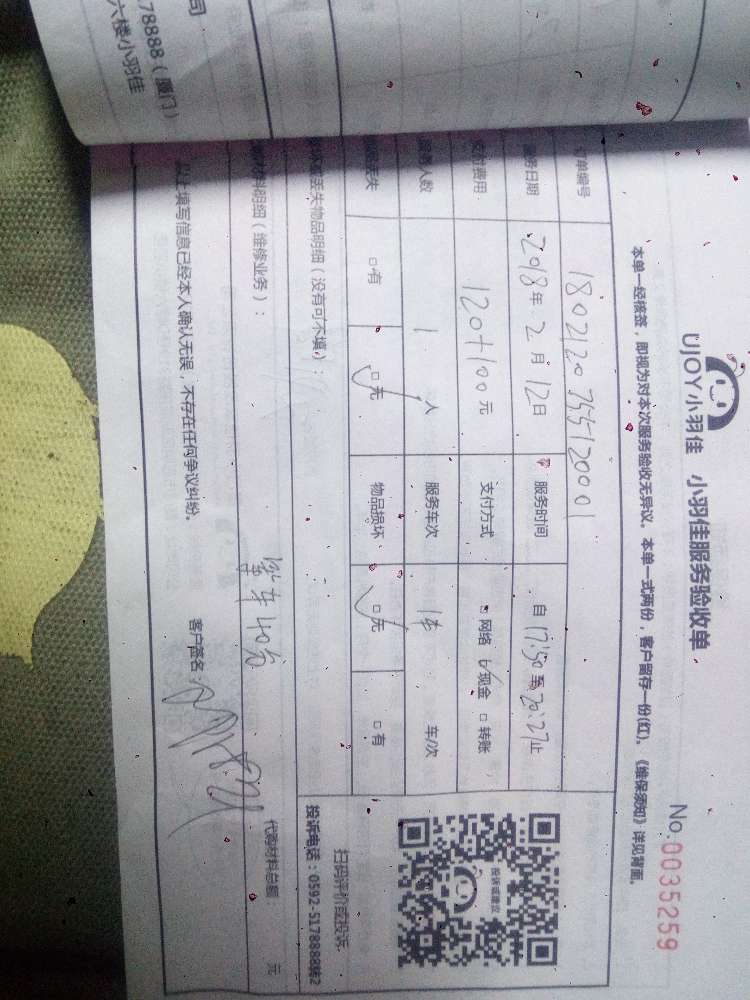 司
78888（厦门）
六楼小羽佳
UJOY小羽佳 小羽佳服务验收单
No.0035259
本单一经接签，即视为对本次服务验收无异议。本单一式两份，客户留存一份(红)。《维保须知》详见背面。
订单编号
服务日期 2018年2月12日 服务时间 自17:50至20:27止
支付费用 120+100元 支付方式 网络 现金 转账
服务人数 1人 服务车次 1车 车/次
物品丢失 有 无 物品损坏 无 有
丢失物品明细（没有可不填）：
材料明细（维修业务）：
代购材料总额： 元
以上填写信息已经本人确认无误，不存在任何争议纠纷。
客户签名：
投诉或建议
扫码评价或投诉
投诉电话：0592-5178888转2